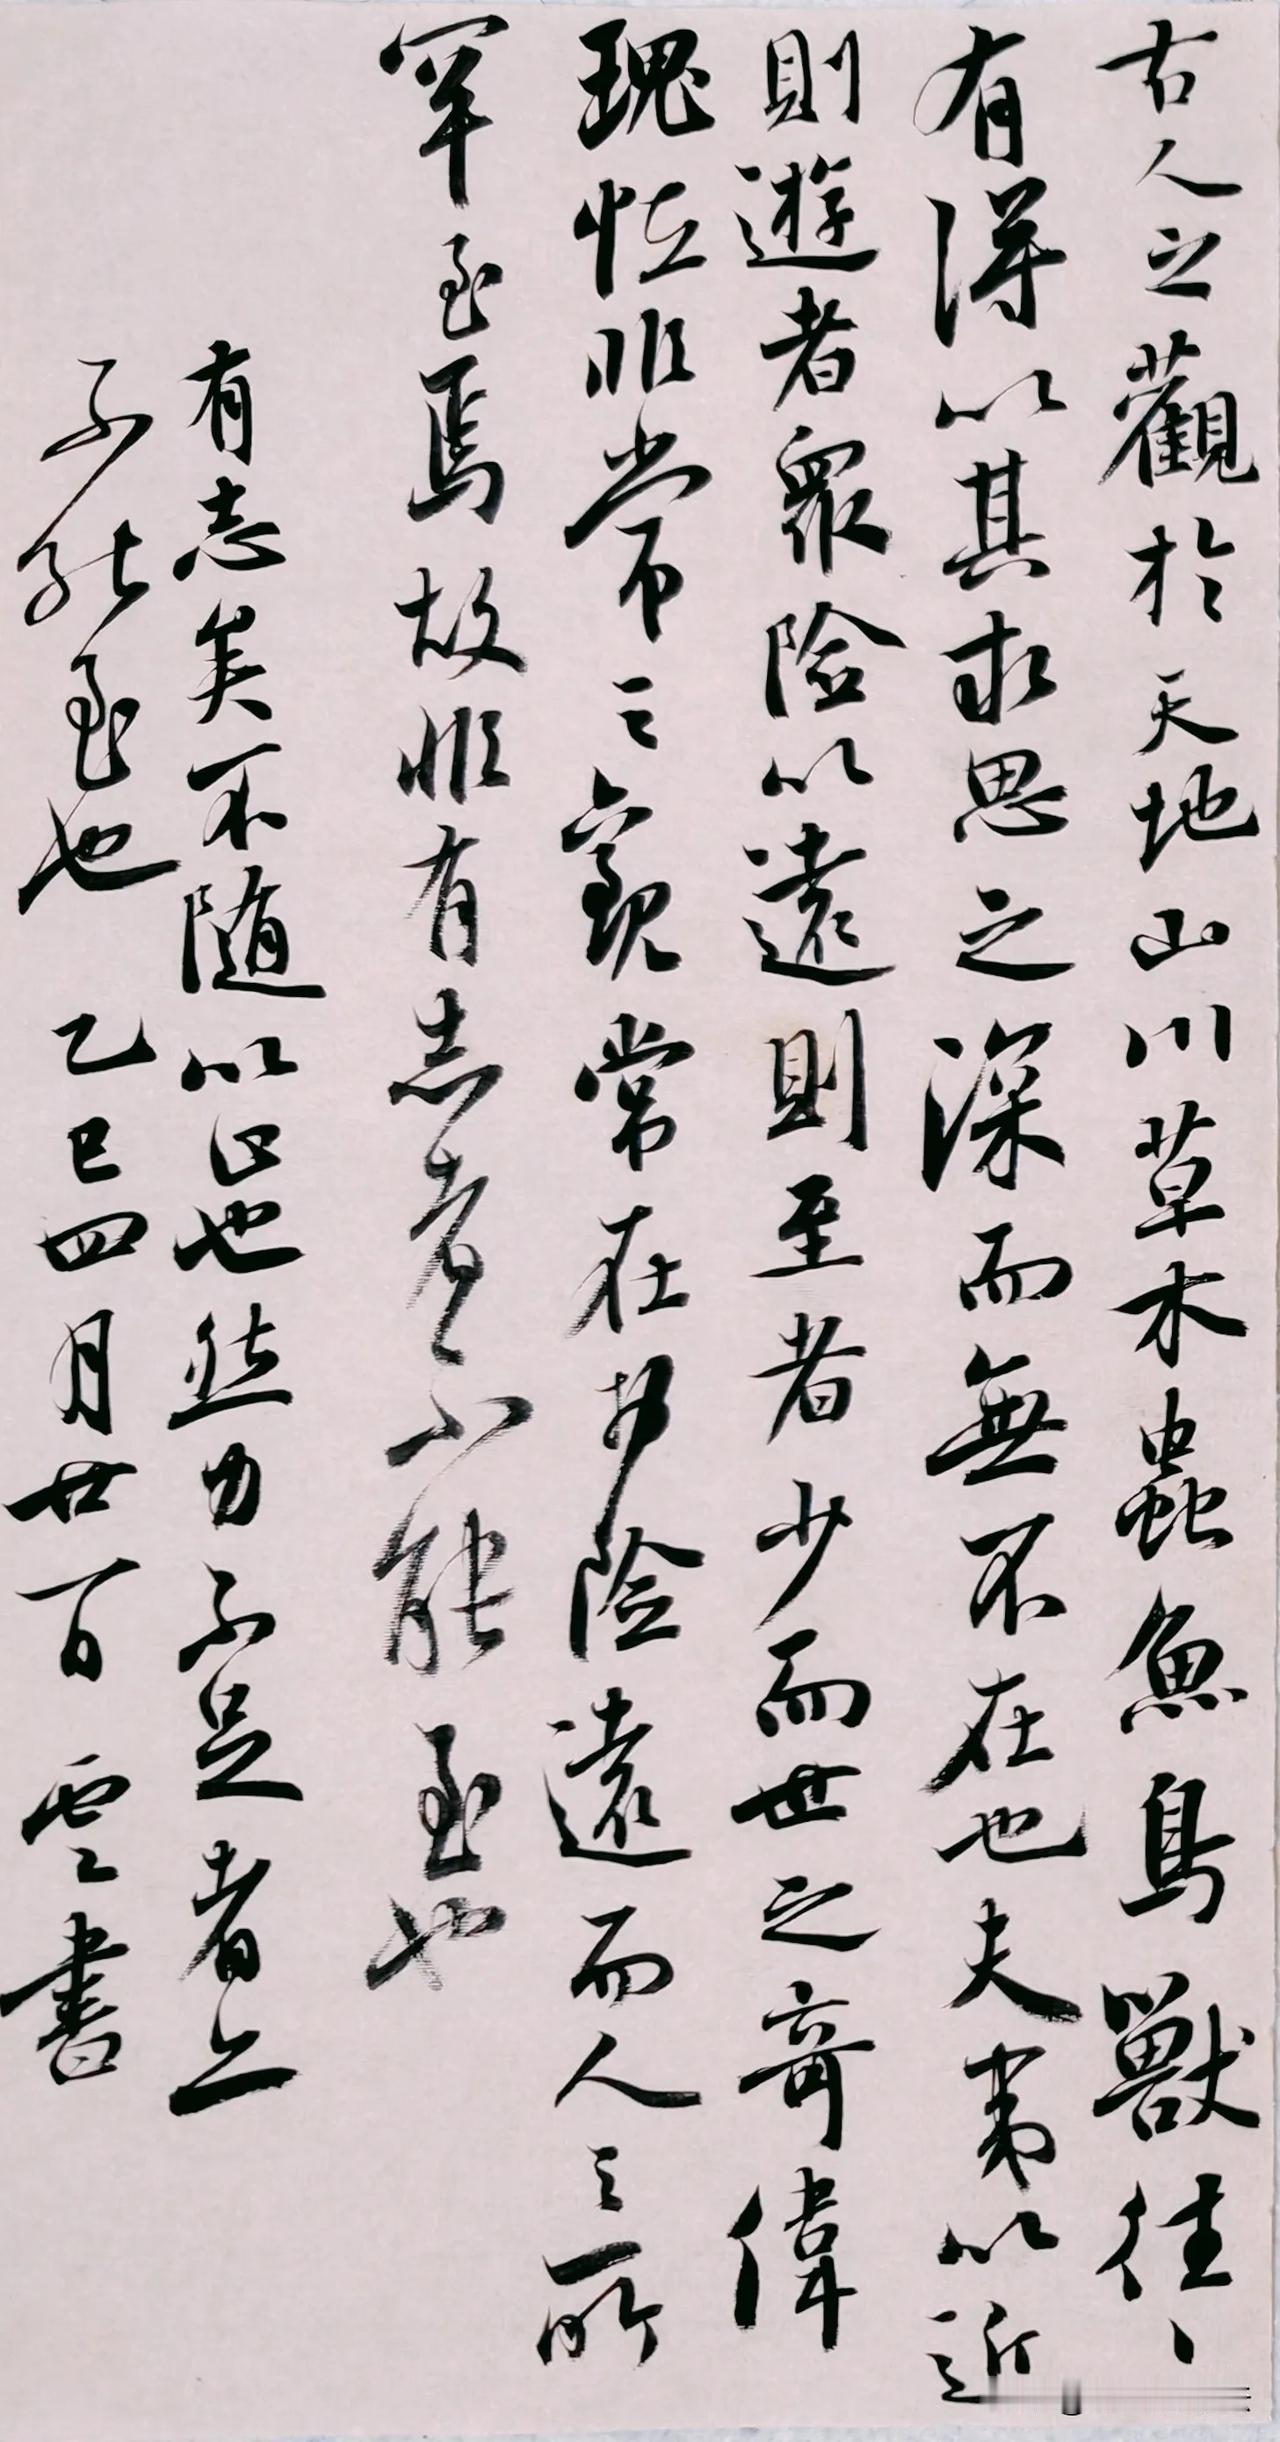 古人之觀於天地山川草木蟲魚鳥獸往々
有得以其求思之深而無不在也夫夷以近
則遊者衆險以遠則至者少而世之奇偉
瑰怪非常之觀常在於險遠而人之所
罕至焉故非有志者不能至也
有志矣不随以止也然力不足者亦
不能至也 乙巳四月廿一日 雲書